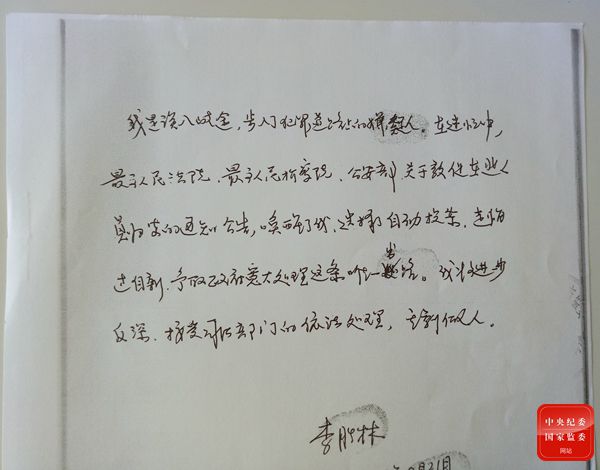 我是误入歧途,步入犯罪道路的犯罪人。在逃忙中,
最高人民法院、最高人民检察院、公安部关于敦促在逃人
员归案的通知公告,唤醒了我,选择了自动投案、悔
过自新、争取政府宽大处理这条唯一出路。我将进步
反深、接受司法部门的依法处理,重新做人。
李胜林
月21日
中央纪委
国家监委
网站